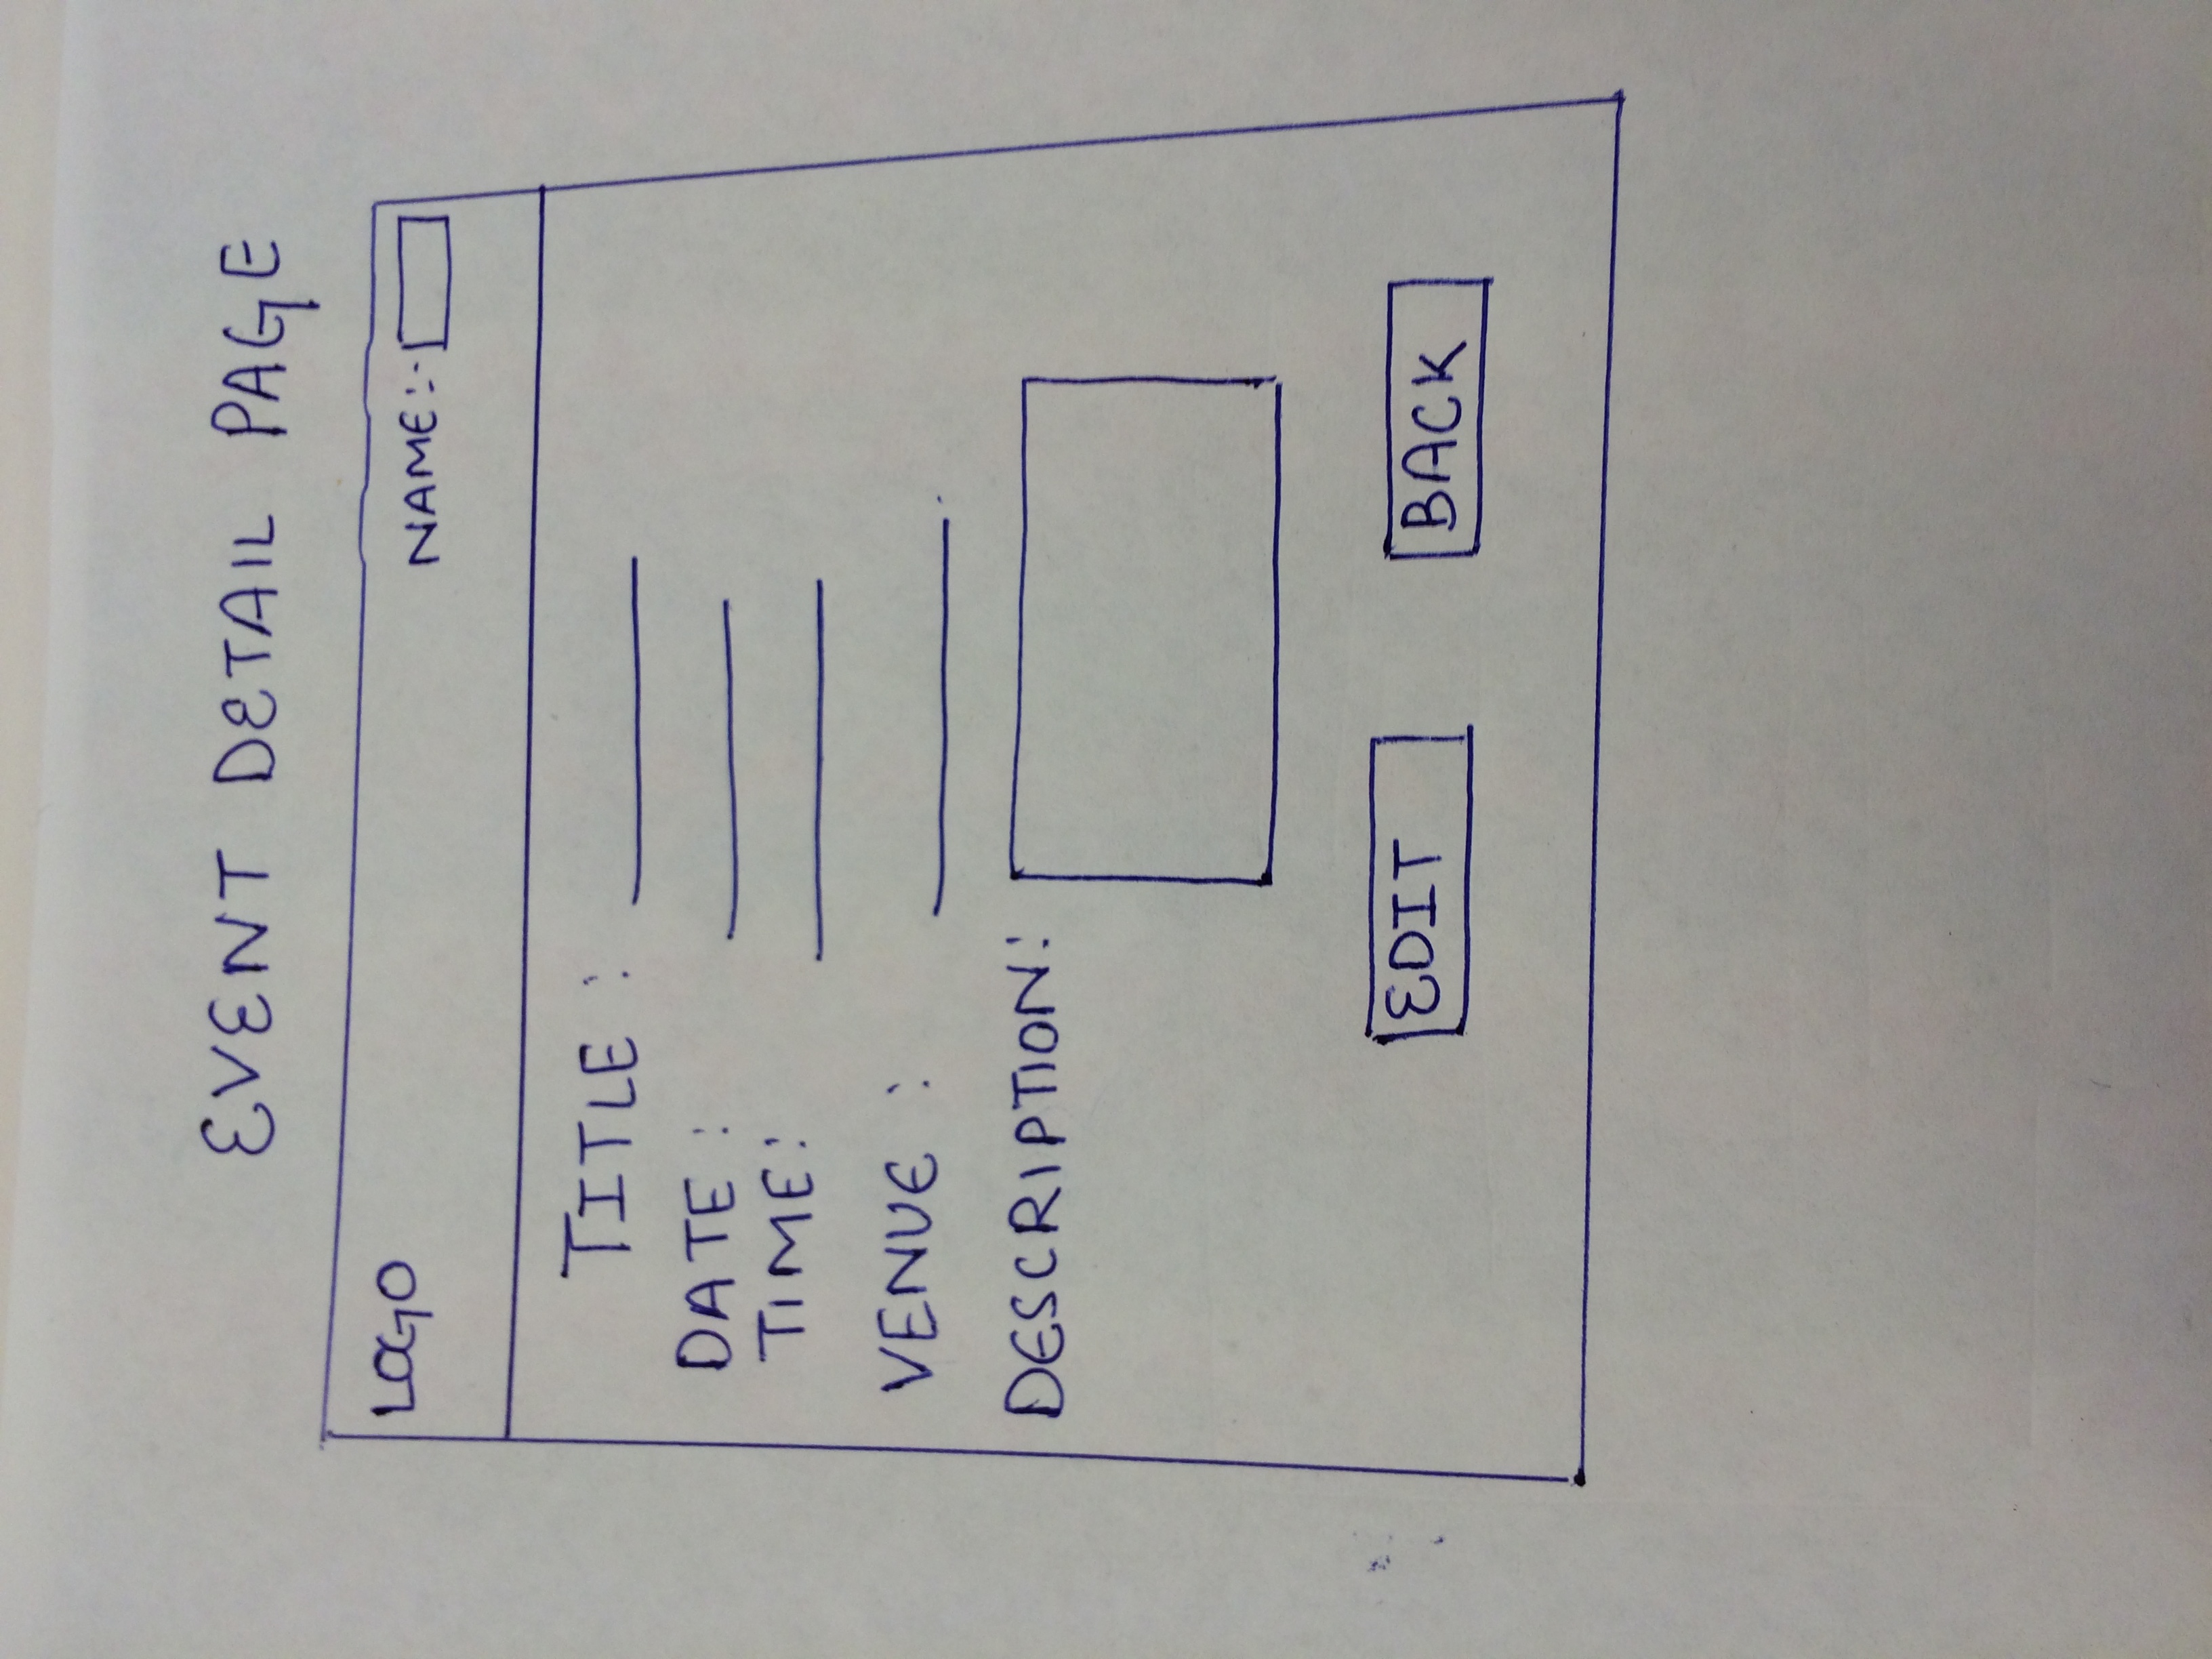 EVENT DETAIL PAGE
LOGO NAME:-
TITLE :
DATE :
TIME:
VENUE :
DESCRIPTION:
EDIT BACK